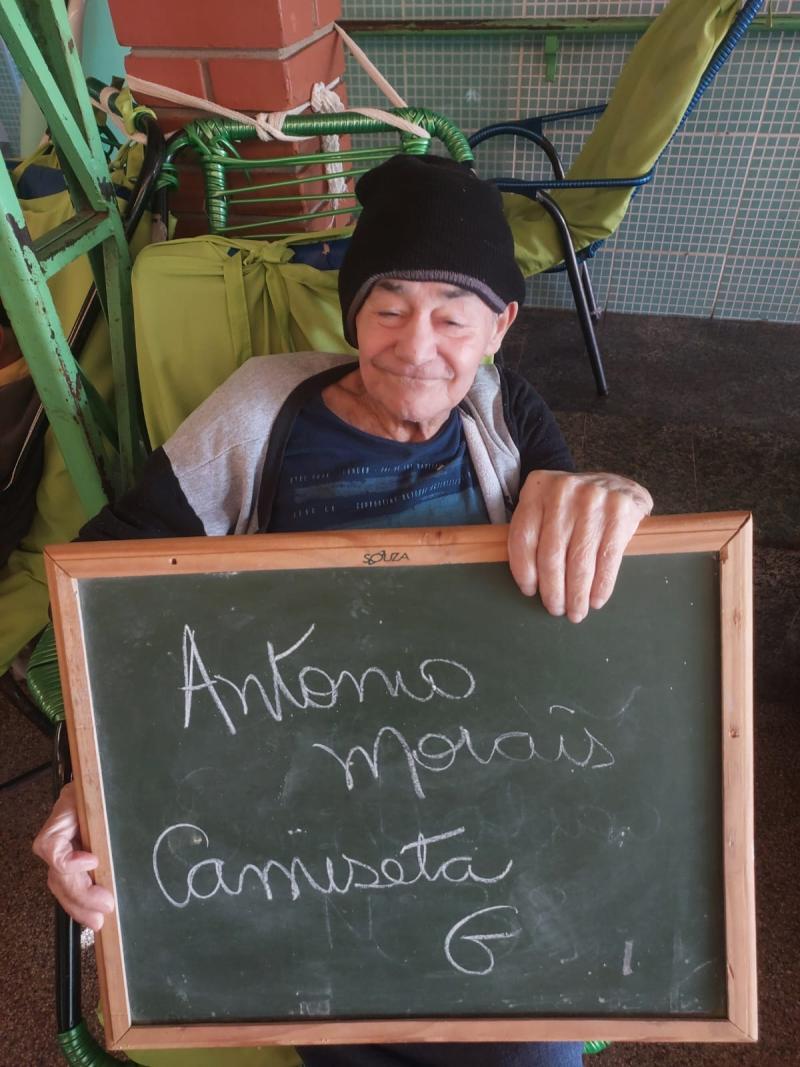 SOUZA
Antonio
Morais
Camiseta
G